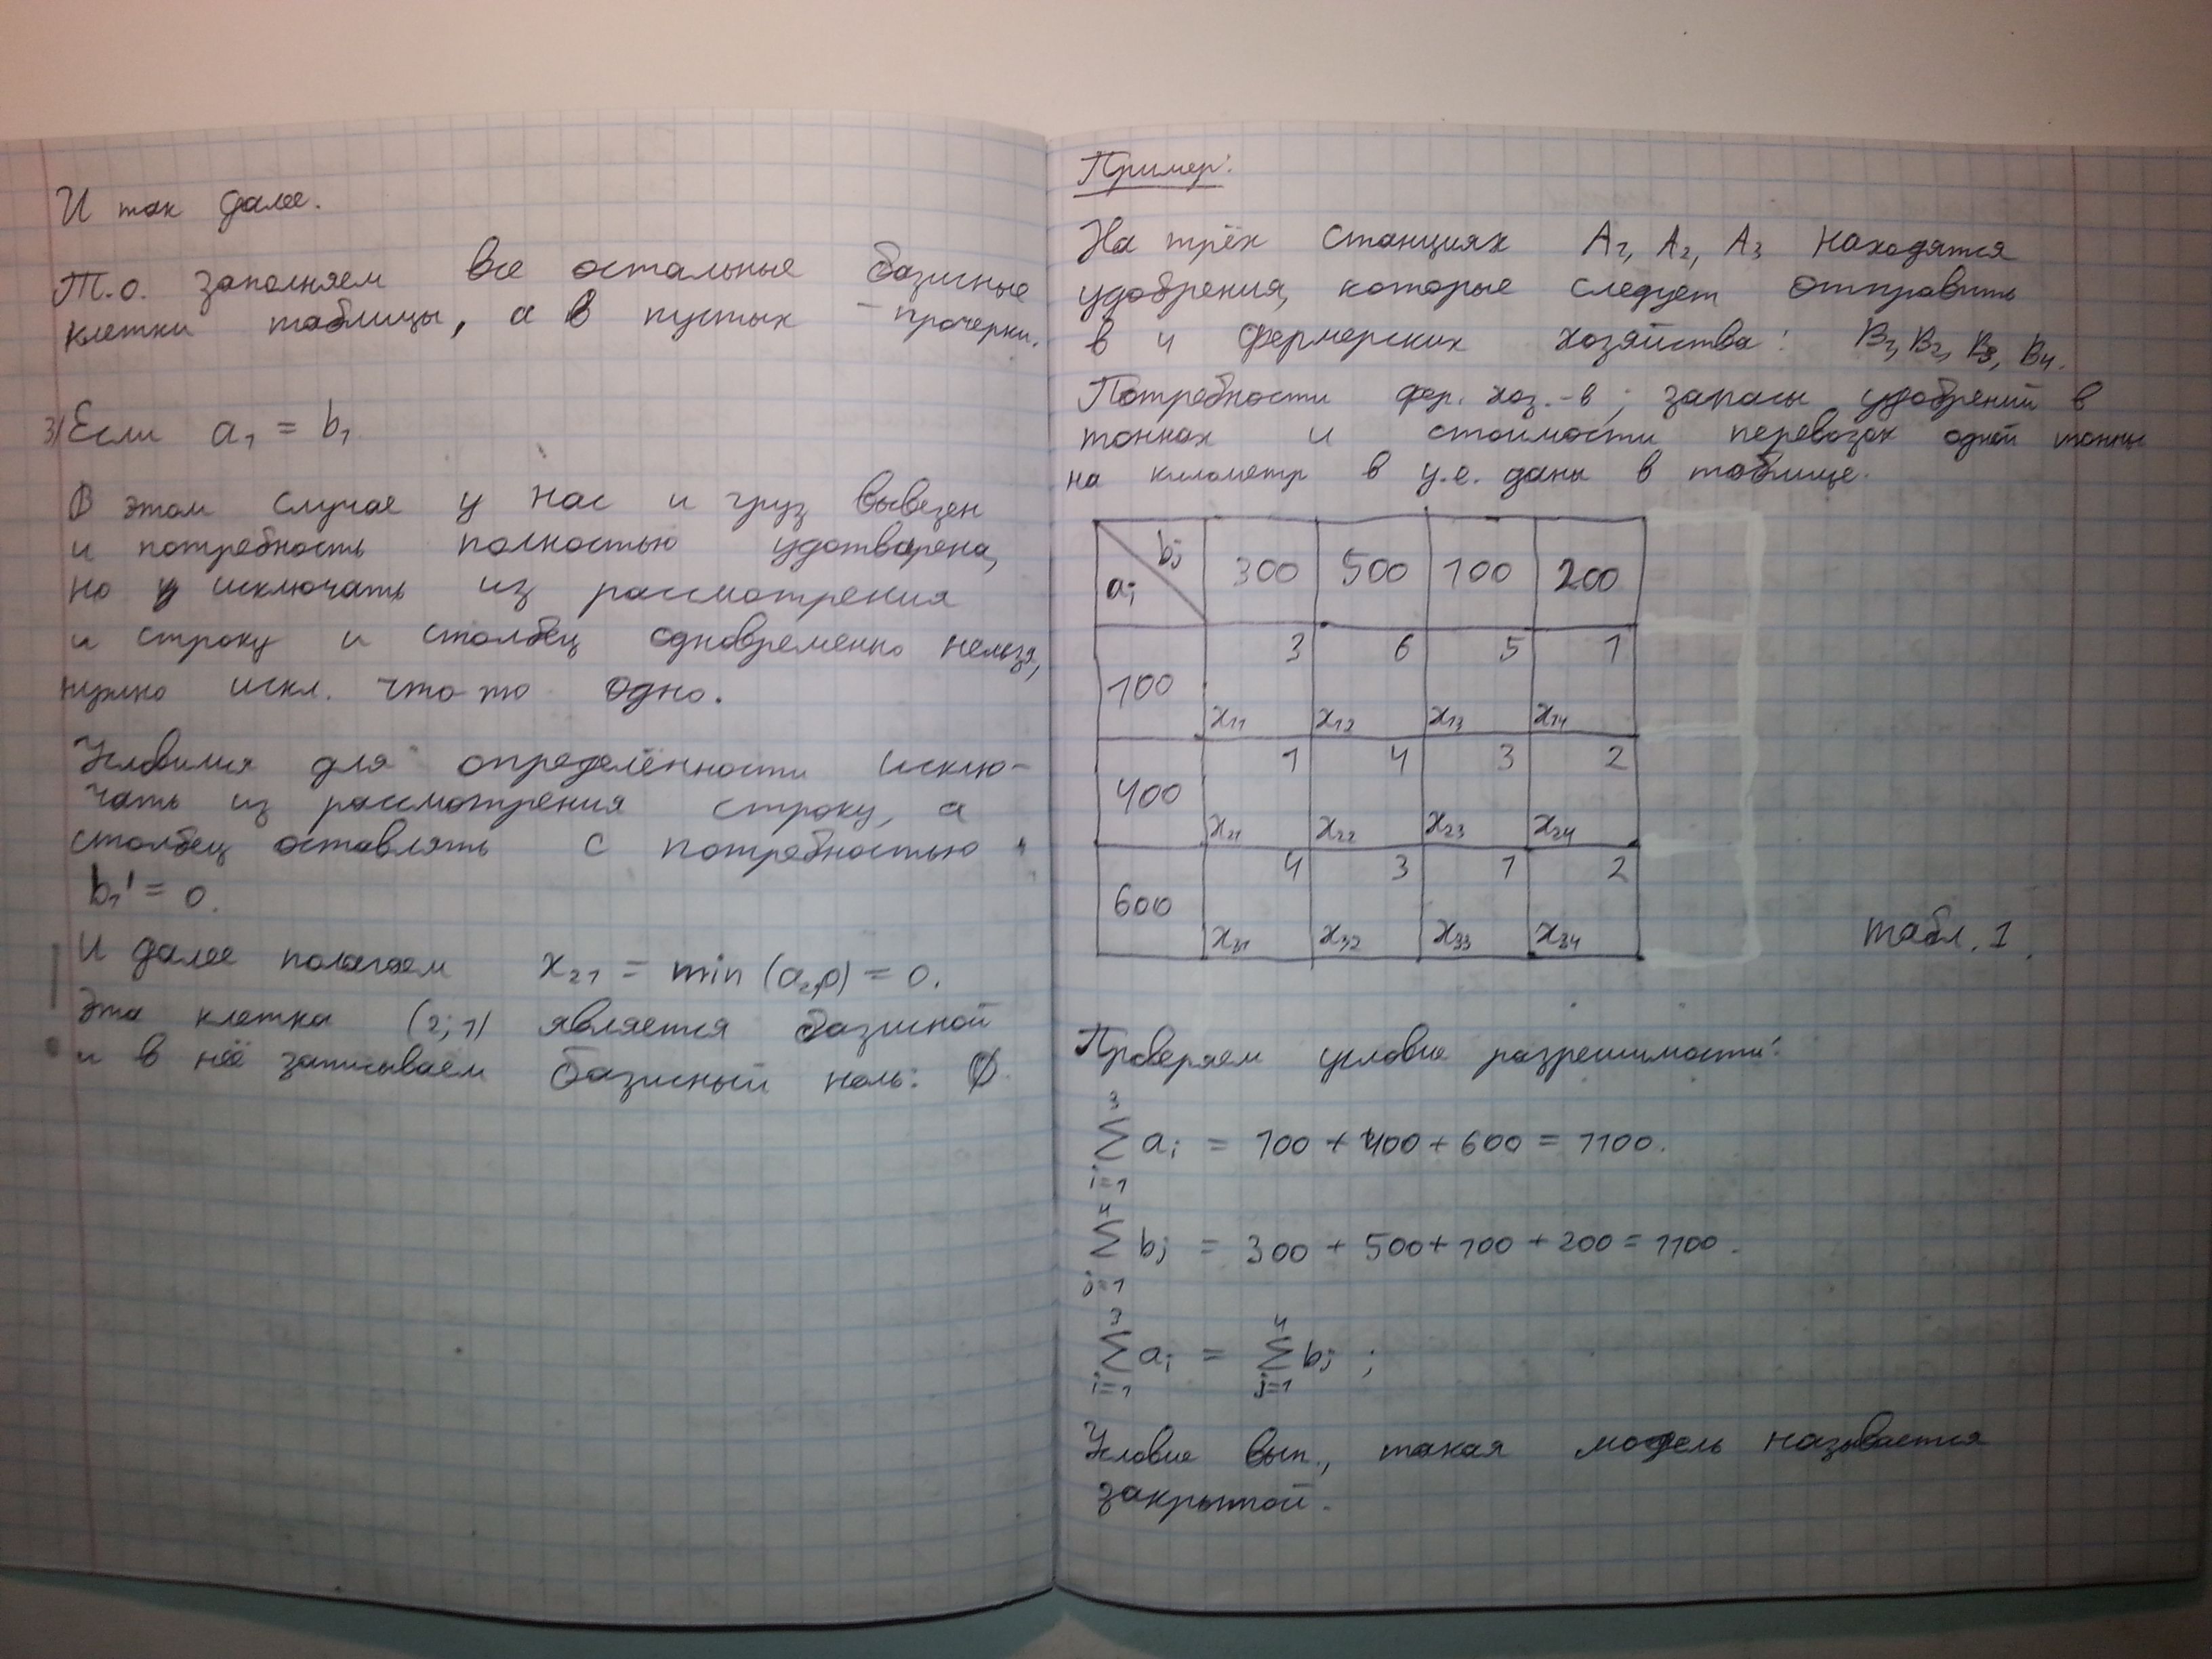 И так далее.
Т.о. заполняем все остальные базисные
клетки таблицы, а в пустых – прочерки.
3) Если a₁ = b₁
В этом случае у нас и груз вывезен
и потребность полностью удотворена,
но исключать из рассмотрения
и строку и столбец одновременно нельзя,
нужно искл. что-то одно.
Условимся для определённости исклю-
чать из рассмотрения строку, а
столбец оставлять с потребностью
b₁' = 0.
И далее полагаем x₂₁ = min (a₂,0) = 0.
! Эта клетка (2;1) является базисной
и в неё записываем базисный ноль: 0̸.
Пример:
На трёх станциях A₁, A₂, A₃ находятся
удобрения, которые следует отправить
в 4 фермерских хозяйства: B₁, B₂, B₃, B₄.
Потребности фер. хоз.-в; запасы удобрений в
тоннах и стоимости перевозок одной тонны
на километр в у.е. даны в таблице.
aᵢ bⱼ 300 500 100 200
3 6 5 1
100
x₁₁ x₁₂ x₁₃ x₁₄
1 4 3 2
400
x₂₁ x₂₂ x₂₃ x₂₄
4 3 1 2
600
x₃₁ x₃₂ x₃₃ x₃₄
табл. 1.
Проверяем условие разрешимости:
3
∑ aᵢ = 100 + 400 + 600 = 1100.
i=1
4
∑ bⱼ = 300 + 500 + 100 + 200 = 1100.
j=1
3 4
∑ aᵢ = ∑ bⱼ ;
i=1 j=1
Условие вып., такая модель называется
закрытой.